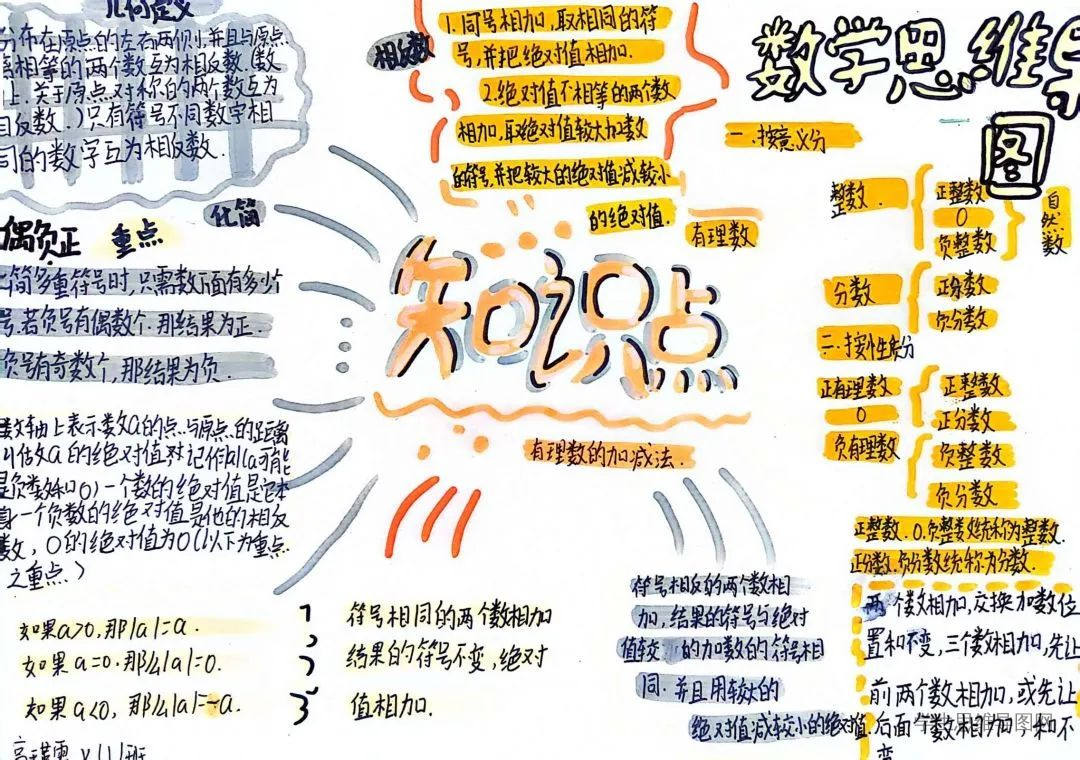 数学思维导
图
几何定义
分布在原点的左右两侧,并且与原点
离相等的两个数互为相反数(数
上.关于原点对称的两个数互为
相反数.)只有符号不同数字相
同的数字互为相反数.
相反数
1.同号相加,取相同的符
号,并把绝对值相加.
2.绝对值不相等的两个数
相加,取绝对值较大加数
的符号,并把较大的绝对值减较小
的绝对值.
有理数
一.按意义分
整数.
正整数
0
负整数
自然数
分数
正分数
负分数
二.按性质分
正有理数
0
负有理数
正整数
正分数
负整数
负分数
正整数.0.负整数统称为整数.
正分数.负分数统称为分数.
化简
偶负正 重点
简多重符号时,只需数面有多少个
号.若负号有偶数个.那结果为正.
负号有奇数个,那结果为负.
知识点
有理数的加减法.
数轴上表示数a的点与原点的距离
a的绝对值 记作|a|(a可能
是负数和0)一个数的绝对值是它本
身一个负数的绝对值是他的相反
数,0的绝对值为0(以下为重点
之重点)
如果a>0,那|a|=a.
如果a=0.那么|a|=0.
如果a<0,那么|a|=-a.
符号相同的两个数相加
结果的符号不变,绝对
值相加.
符号相反的两个数相
加,结果的符号与绝对
值较 的加数的符号相
同.并且用较大的
绝对值减较小的绝对值.
两个数相加,交换加数位
置和不变,三个数相加,先让
前两个数相加,或先让
后面个数相加,和不
变